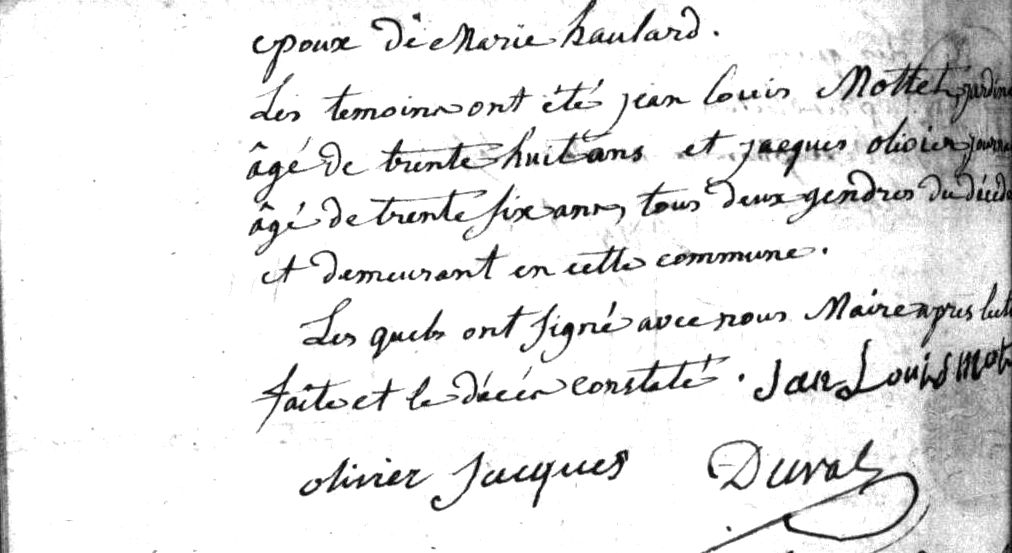 epoux de Marie haulard.
Les temoins ont été jean louis Mottet, jardin
âgé de trente huit ans et jacques olivier journa
âgé de trente six ans, tous deux gendres du décéd
et demeurant en cette commune.
Les quels ont signé avec nous Maire apres lect
faite et le décés constaté. Jan Louis Mot
olivier Jacques Duval